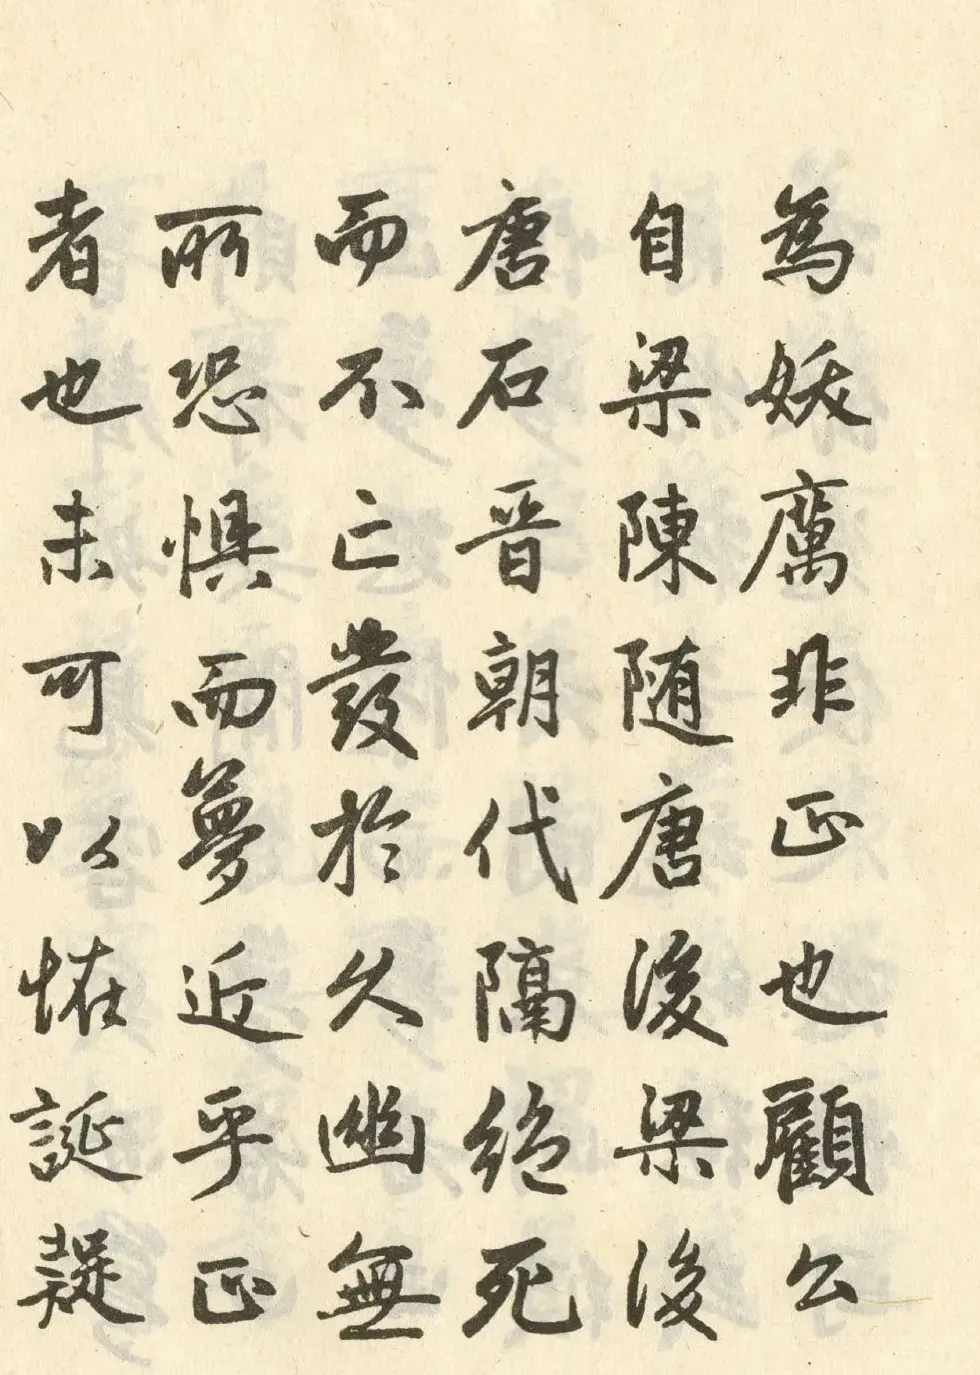 為妖厲非正也顧公
自梁陳随唐後梁後
唐石晉朝代隔絶死
而不亡發於久幽無
所恐惧而夢近乎正
者也未可以怪誕疑